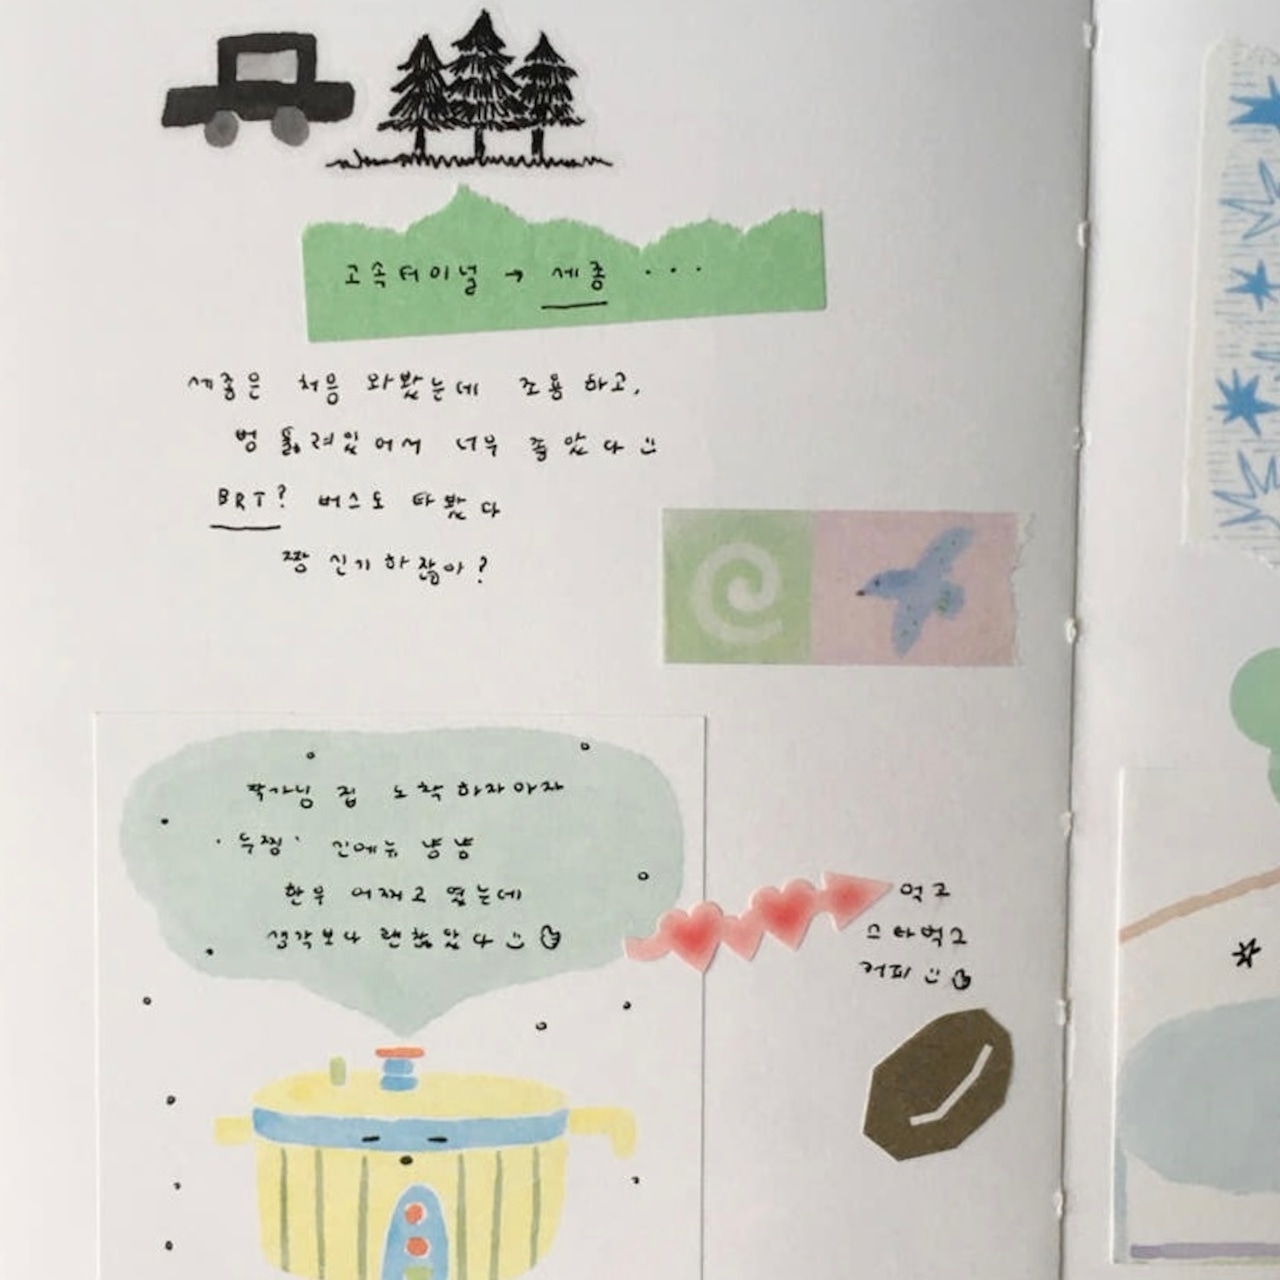 고속터미널 → 세종 ...
세종은 처음 와봤는데 조용하고,
벙 뚫려있어서 너무 좋았다
BRT? 버스도 타봤다
짱 신기하잖아?
작가님 집 도착하자마자
간메뉴 냠냠
한우 어쩌고 였는데
생각보다 괜찮았다
먹고
스타벅스
커피